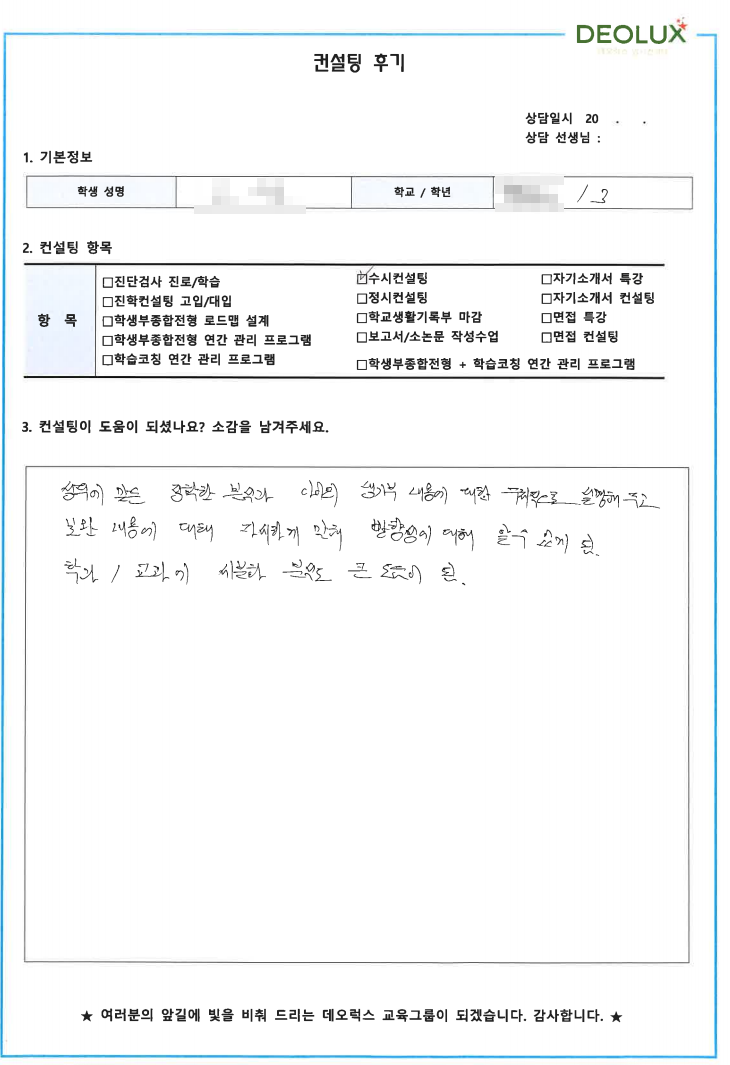 DEOLUX
컨설팅 후기
상담일시 20 . .
상담 선생님 :
1. 기본정보
학생 성명 학교 / 학년 / 3
2. 컨설팅 항목
항 목
□진단검사 진로/학습 ☑수시컨설팅 □자기소개서 특강
□진학컨설팅 고입/대입 □정시컨설팅 □자기소개서 컨설팅
□학생부종합전형 로드맵 설계 □학교생활기록부 마감 □면접 특강
□학생부종합전형 연간 관리 프로그램 □보고서/소논문 작성수업 □면접 컨설팅
□학습코칭 연간 관리 프로그램 □학생부종합전형 + 학습코칭 연간 관리 프로그램
3. 컨설팅이 도움이 되셨나요? 소감을 남겨주세요.
성적에 맞는 정확한 분석과 생기부 내용에 대한 설명해 주고
보완 내용에 대해 자세하게 말해 방향성에 대해 알수 있게 됨.
학과 / 교과 분석도 큰 도움이 됨.
★ 여러분의 앞길에 빛을 비춰 드리는 데오럭스 교육그룹이 되겠습니다. 감사합니다. ★